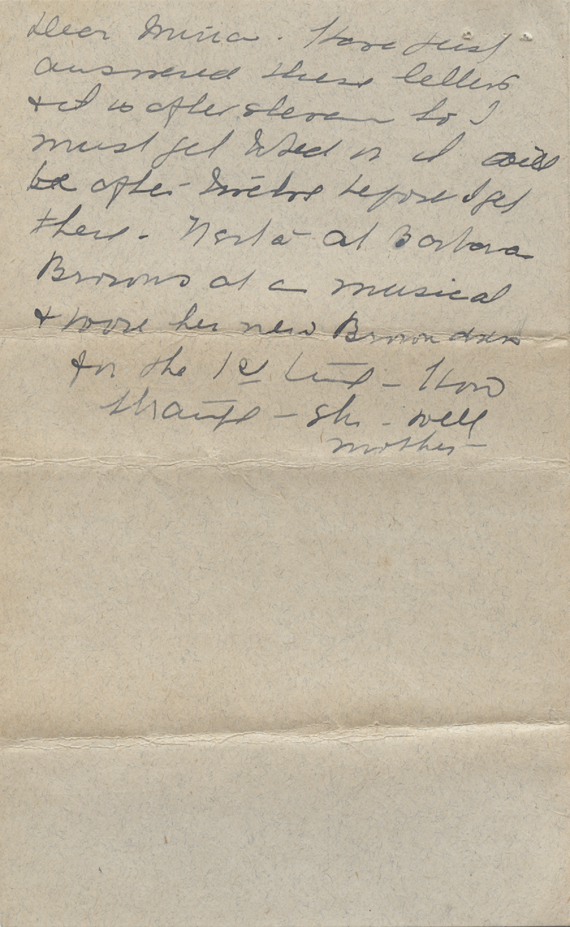 Dear Mina. Have just
answered these letters
& it is after eleven so I
must get to bed or it will
be after twelve before I get
there. at Barbara
Browns at a musical
& wore her new Brown dress
for the 1st time - How
strange - She - well
mother -